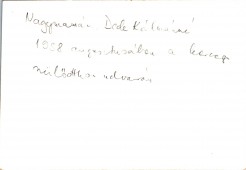 Nagymamám Dede Kálmánné
1938 augusztusában a kecsege
szülőotthon udvarán